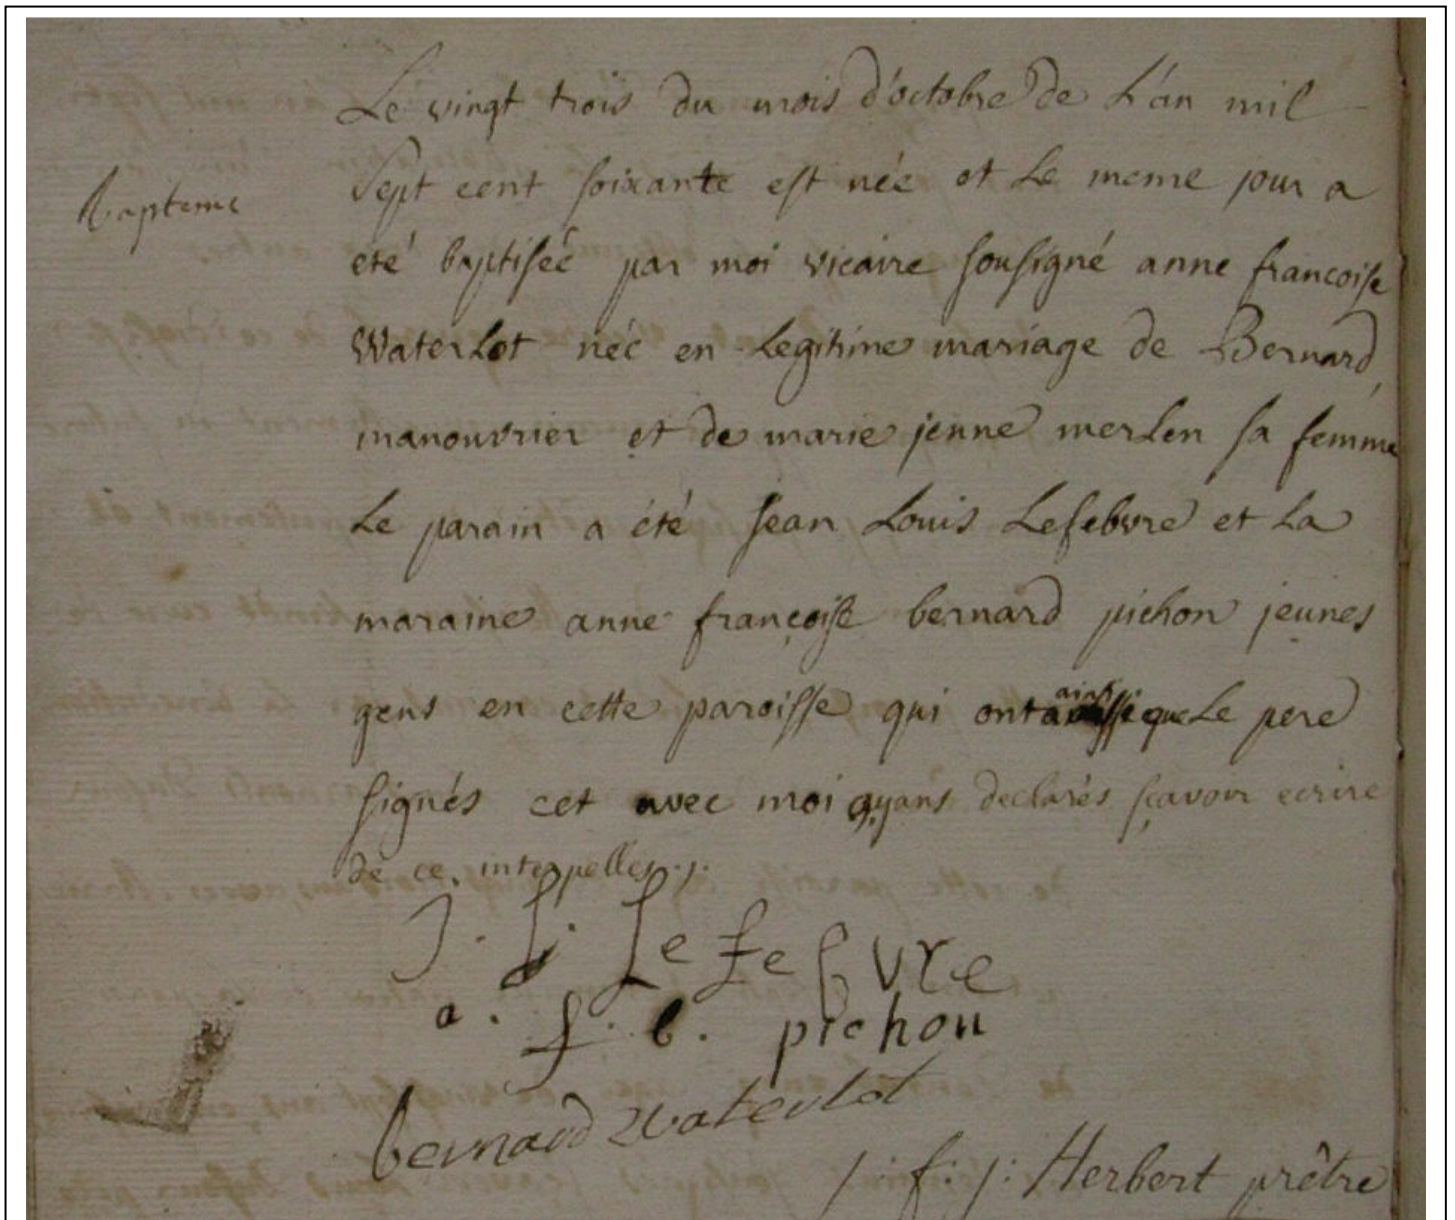 Le vingt trois du mois d'octobre de L'an mil
Bapteme
Sept cent soixante est née et Le meme jour a
eté baptiseé par moi vicaire sousigné anne francoise
Waterlot née en Legitime mariage de Bernard,
manouvrier et de marie jenne merlen sa femme
Le parain a été jean Louis Lefebvre et La
maraine anne françoise bernard pichon jeunes
gens en cette paroisse qui ont ainsi que Le pere
signés cet avec moi ayans declarés sçavoir ecrire
de ce. interpelles.j.
J. L. Lefebvre
a. f. b. pichon
bernard waterlot
j. f. j. Herbert prêtre